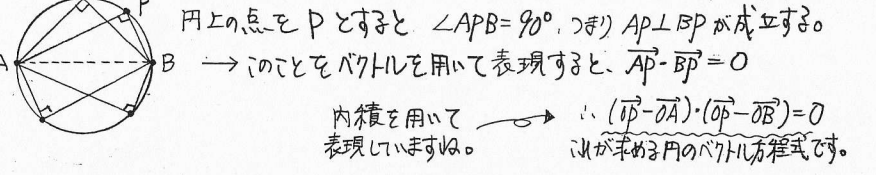 円上の点をPとすると ∠APB=90°、つまり AP⊥BPが成立する。
P
A
B
→このことをベクトルを用いて表現すると、$\overrightarrow{AP}\cdot\overrightarrow{BP}=0$
内積を用いて
表現していますね。
∴ $(\overrightarrow{OP}-\overrightarrow{OA})\cdot(\overrightarrow{OP}-\overrightarrow{OB})=0$
これが求める円のベクトル方程式です。